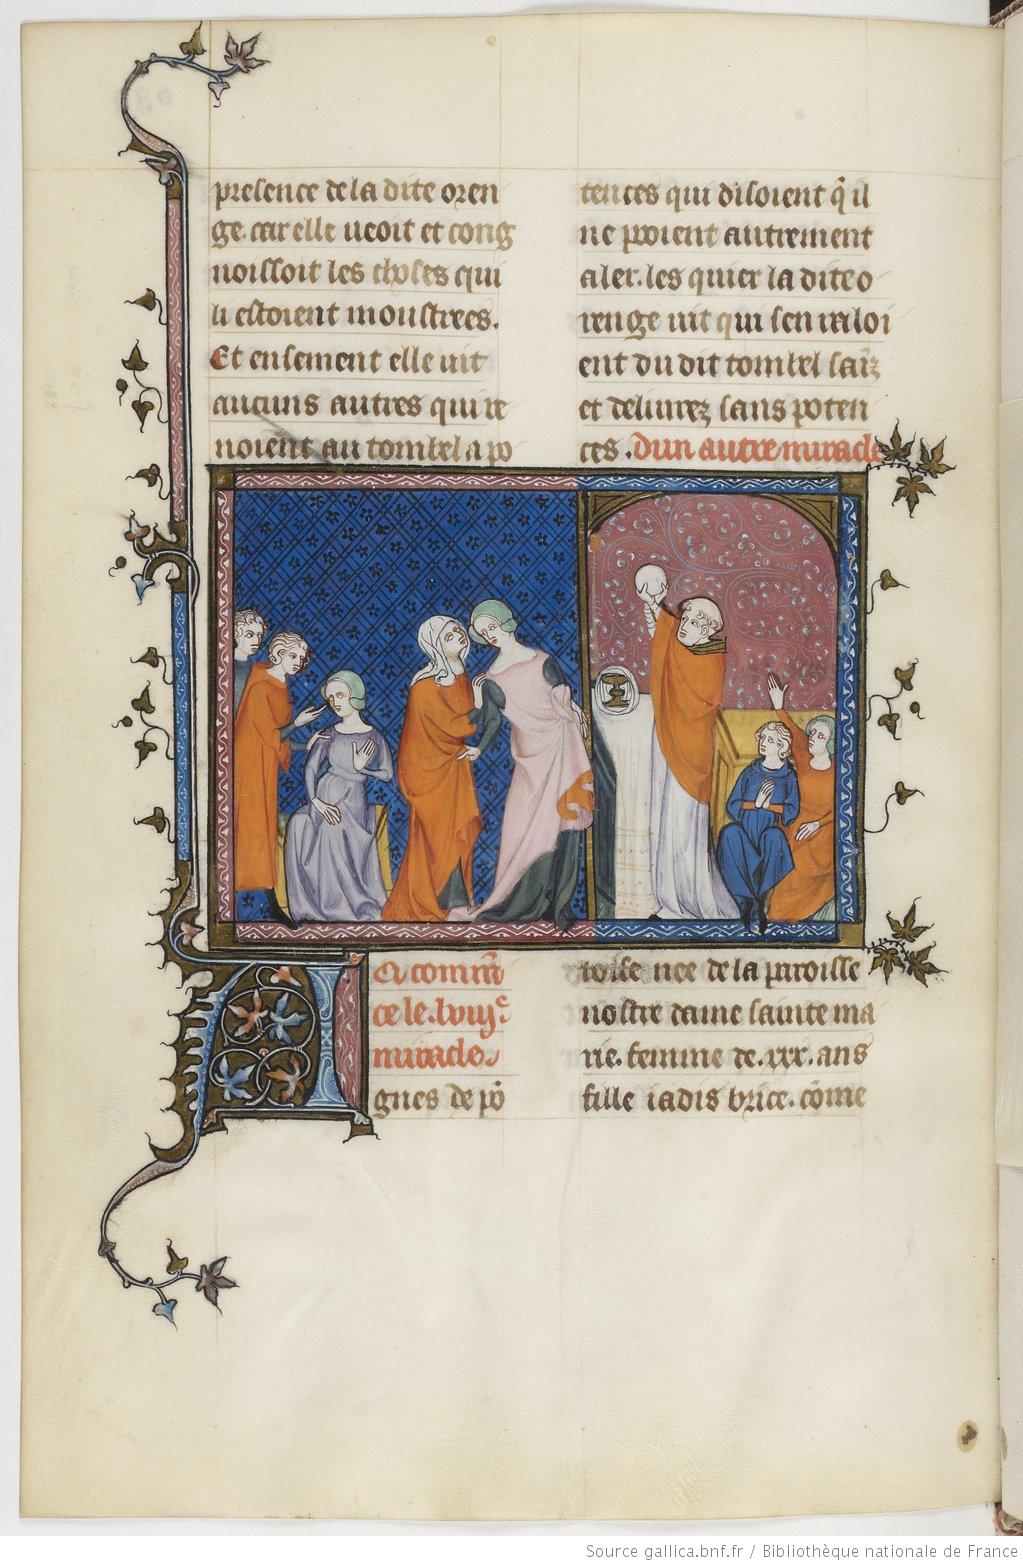 presence de la dite oren
ge. car elle veoit et cong
noissoit les choses qui
li estoient moustrees.
Et ensement elle vit
aucuns autres qui ve
noient au tombel a po
tences qui disoient q̃ il
ne pooient autrement
aler. les quier la dite o
renge vit qui sen raloi
ent du dit tombel sainz
et delivrez sans poten
ces. Dun autre miracle
Ci comm̃
ce le .lviij.e
miracle.
Agnes de põ
toise nee de la paroisse
nostre dame sainte ma
rie. femme de .xxx. ans
fille iadis brice. cõme
Source gallica.bnf.fr / Bibliothèque nationale de France